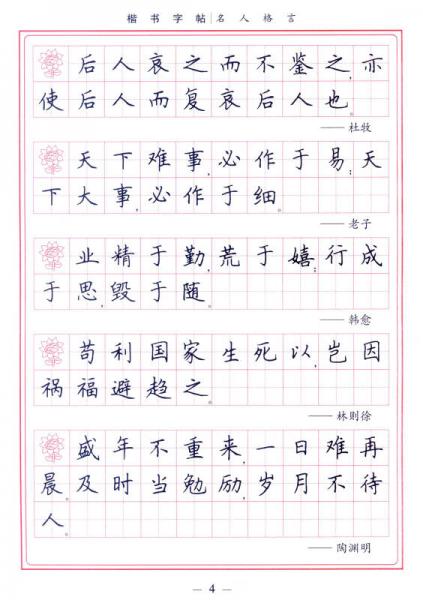 楷书字帖|名人格言
后人哀之而不鉴之,亦
使后人而复哀后人也。
——杜牧
天下难事,必作于易;天
下大事,必作于细。
——老子
业精于勤,荒于嬉;行成
于思,毁于随。
——韩愈
苟利国家生死以,岂因
祸福避趋之。
——林则徐
盛年不重来,一日难再
晨。及时当勉励,岁月不待
人。
——陶渊明
— 4 —